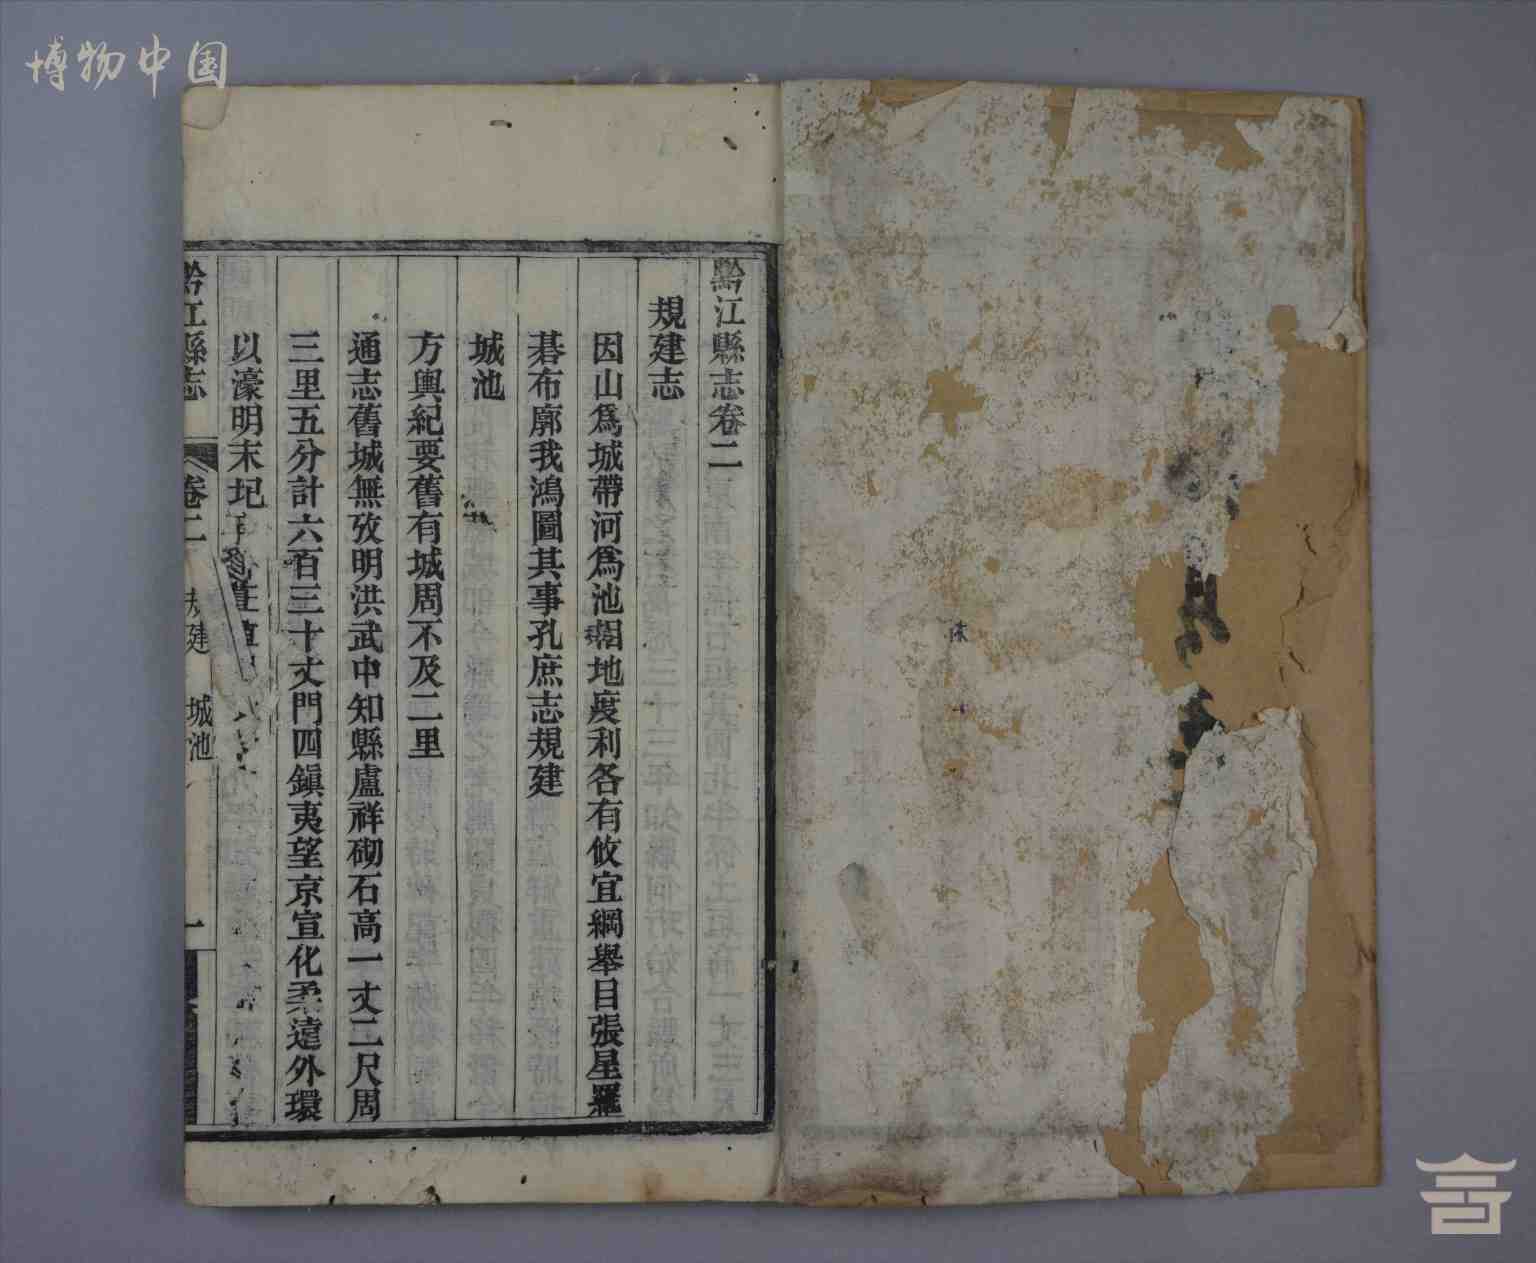 博物中国
黔江縣志卷二
規建志
因山爲城帶河爲池相地度利各有攸宜綱舉目張星羅
碁布廓我鴻圖其事孔庶志規建
城池
方輿紀要舊有城周不及二里
通志舊城無攷明洪武中知縣盧祥砌石高一丈二尺周
三里五分計六百三十丈門四鎮夷望京宣化柔遠外環
以濠明末圮
黔江縣志 卷二 規建 城池 一